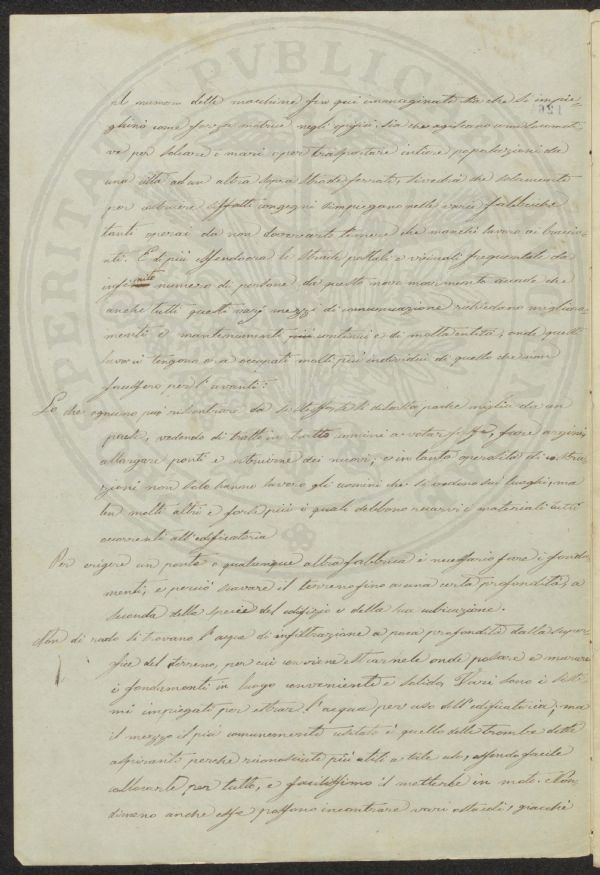 al numero delle macchine fin qui immaginate sia che si impie-
ghino come forza motrice negli opifici sia che agiscano come locomoti-
ve per solcare i mari o per trasportare intiere popolazioni da
una città ad un altra sopra strade ferrate, si vedrà che solamente
per costruire siffatti congegni s'impiegano nelle varie fabbriche
tanti operai da non doversi temere che manchi lavoro ai braccian-
ti. E di più essendo le strade postali e vicinali frequentate da
infinito numero di persone da questo novo movimento accade che
anche tutti questi varj mezzi di comunicazione richiedano migliora-
menti e mantenimenti più continui e di molta entità, onde questi
lavori tengono ora occupati molti più individui di quello che non
facessero per l'avanti.
Lo che ognuno può riscontrare da se stesso
vedendo di tratto in tratto uomini a votar fossi, fare argini,
allargare ponti e costruirne dei nuovi; e in tanta operosità di costru-
zioni non solo hanno lavoro gli uomini che si vedono sui luoghi, ma
ben molti altri e forse più i quali debbono recarvi i materiali tutti
occorrenti all'edificatoria
Per erigere un ponte o qualunque altra fabbrica è necessario fare i fonda-
menti, e perciò scavare il terreno fino a una certa profondità, a
seconda della specie del edifizio e della sua ubicazione.
Non di rado si trovano l'acque di infiltrazione a poca profondità dalla super-
ficie del terreno, per cui conviene estrarnele onde posare e murare
i fondamenti in luogo conveniente e solido. Vari sono i siste-
mi impiegati per estrar l'acqua per uso dell'edificatoria; ma
il mezzo il più comunemente usitato è quello delle trombe dette
aspiranti perchè riconosciute più utili a tale uso, essendo facile
collocarle per tutto, e facilissimo il metterle in moto. Non-
dimeno anche esse possono incontrare vari ostacoli, giacchè
PERITAT
PVBLICA